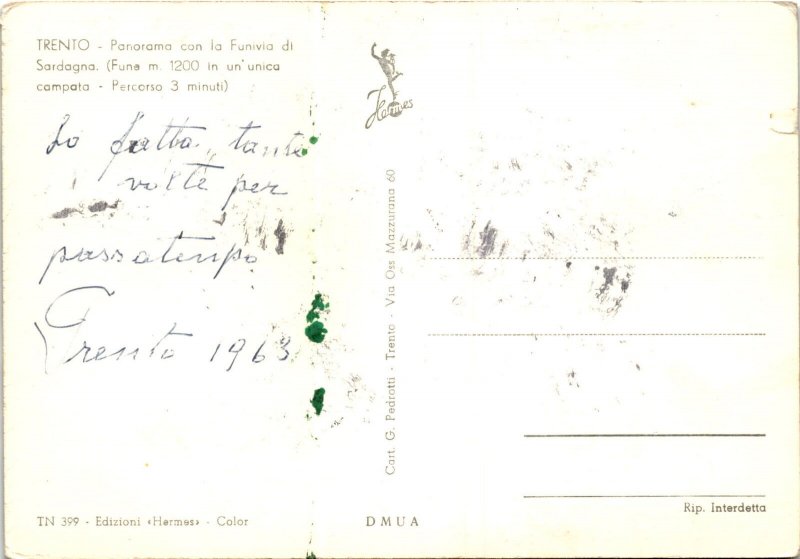 TRENTO - Panorama con la Funivia di
Sardagna. (Fune m. 1200 in un' unica
campata - Percorso 3 minuti)
Lo fatta, tante
volte per
passatempo
Trento 1963
Hermes
Cart. G. Pedrotti - Trento - Via Oss Mazzurana 60
Rip. Interdetta
TN 399 - Edizioni «Hermes» - Color
DMUA